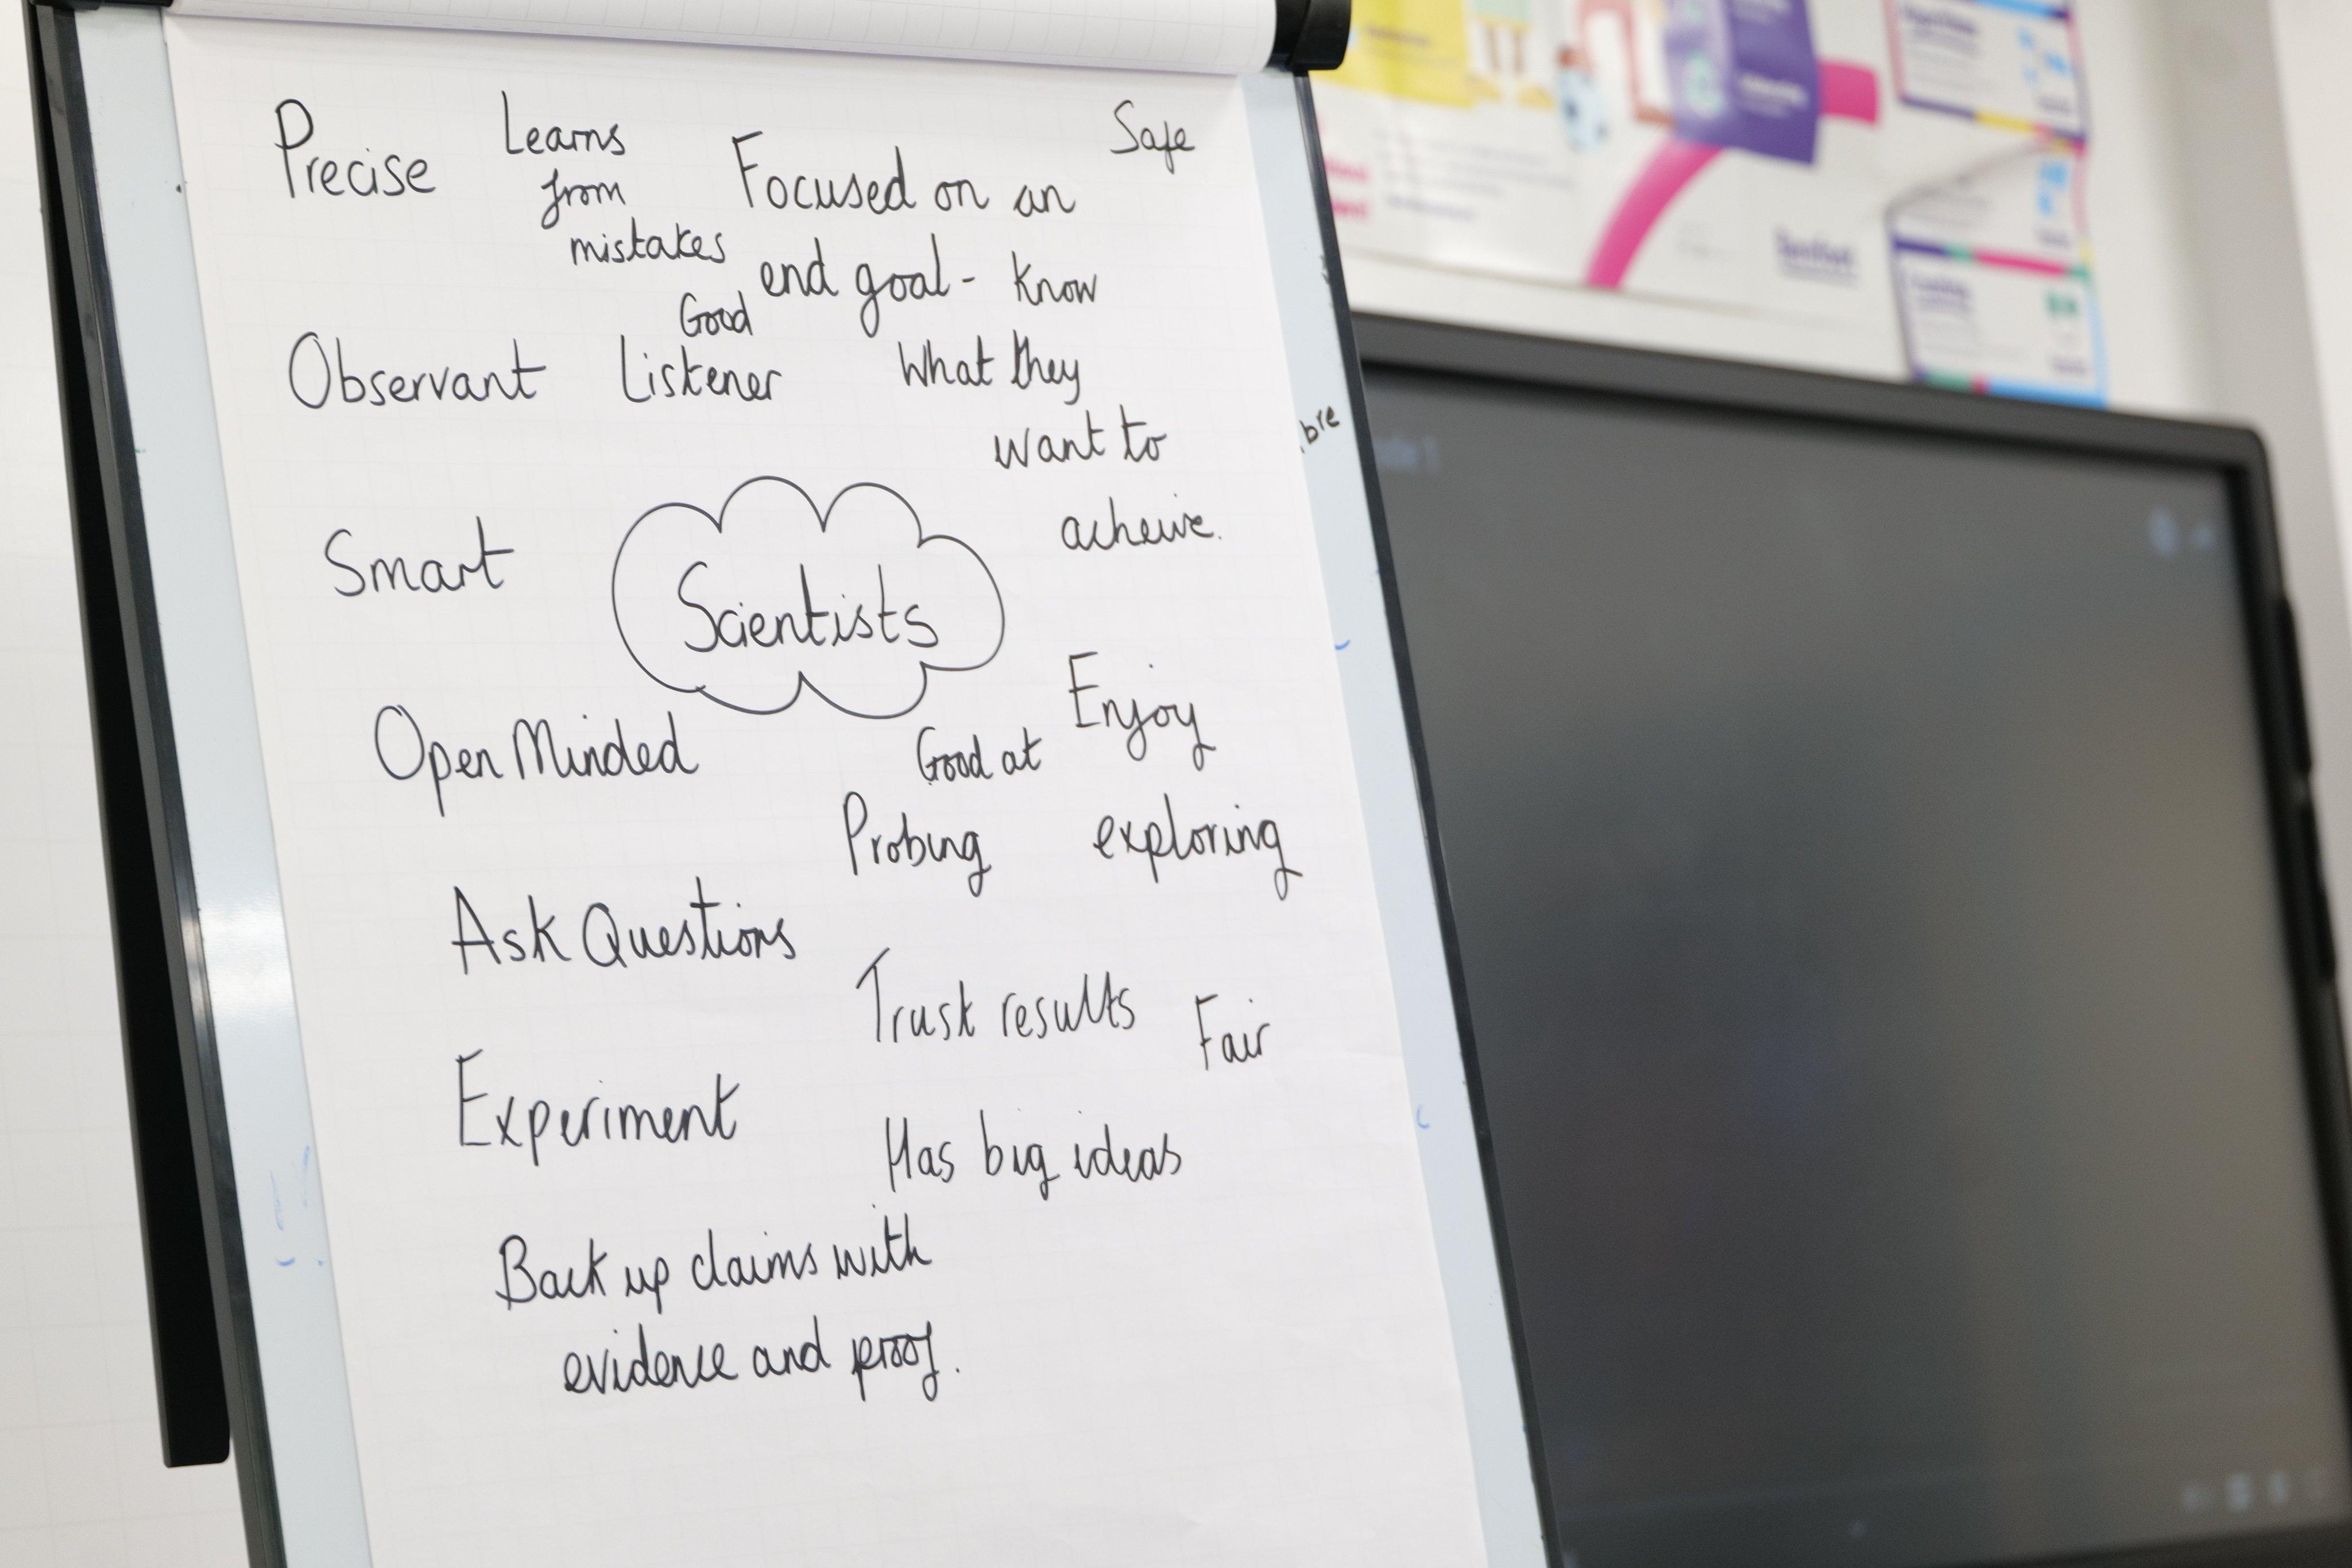 Precise
Learns
from
mistakes
Focused on an
end goal - know
what they
want to
acheive.
Safe
Observant
Good
Listener
Smart
Scientists
Open Minded
Good at
Probing
Enjoy
exploring
Ask Questions
Trust results
Fair
Experiment
Has big ideas
Back up claims with
evidence and proof.